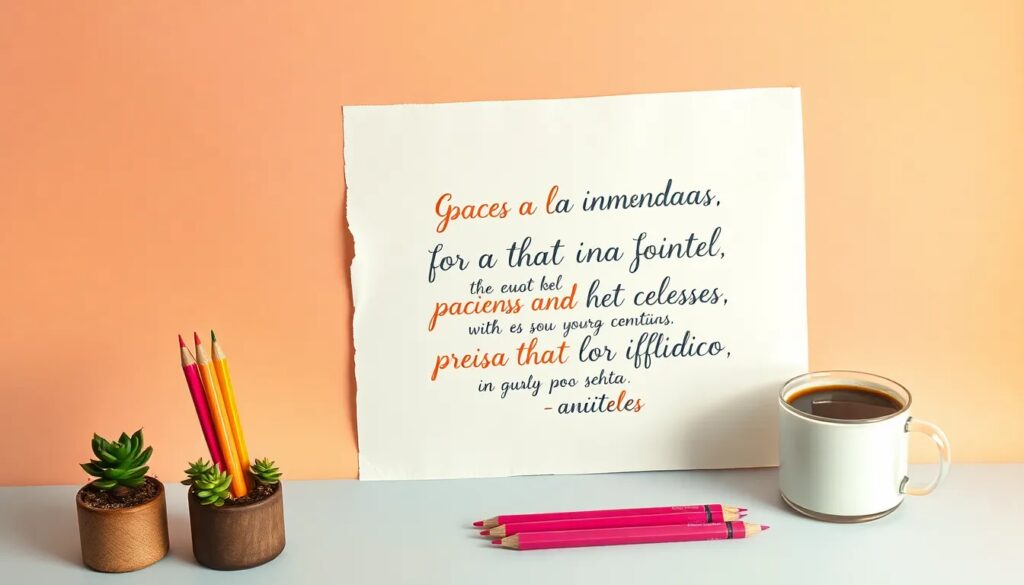 Gpaces a la inmendaas,
for a that ina fointel,
the euot kel
paciens and het celesses,
with es sou yourg cemtiins.
preisa that lor ifflidico,
in gurly poo sehta.
- aniiteles